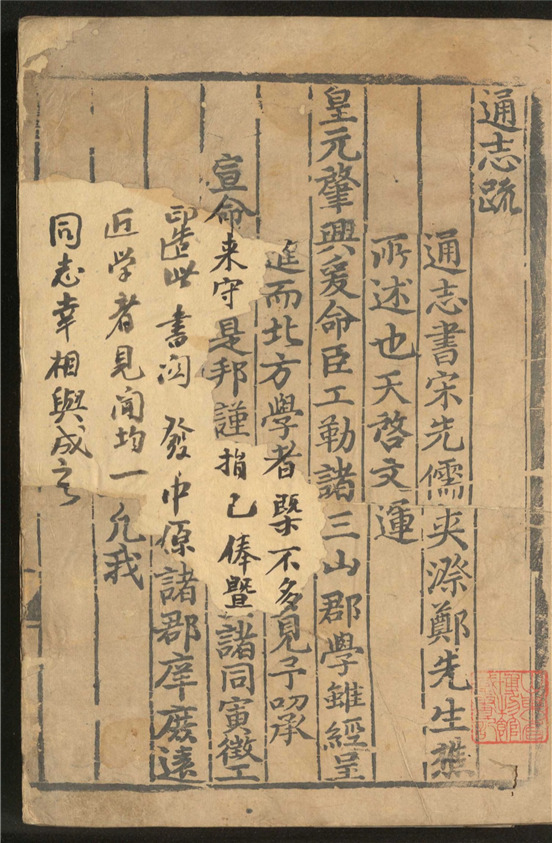 通志疏
通志書宋先儒夾漈鄭先生樵
所述也天啓文運
皇元肇興爰命臣工勒諸三山郡學雖經呈
進而北方學者槩不多見予叨承
宣命来守是邦謹捐己俸暨諸同寅徵工
印造此書関發中原諸郡庠庶遠
近学者見聞均一凢我
同志幸相與成之